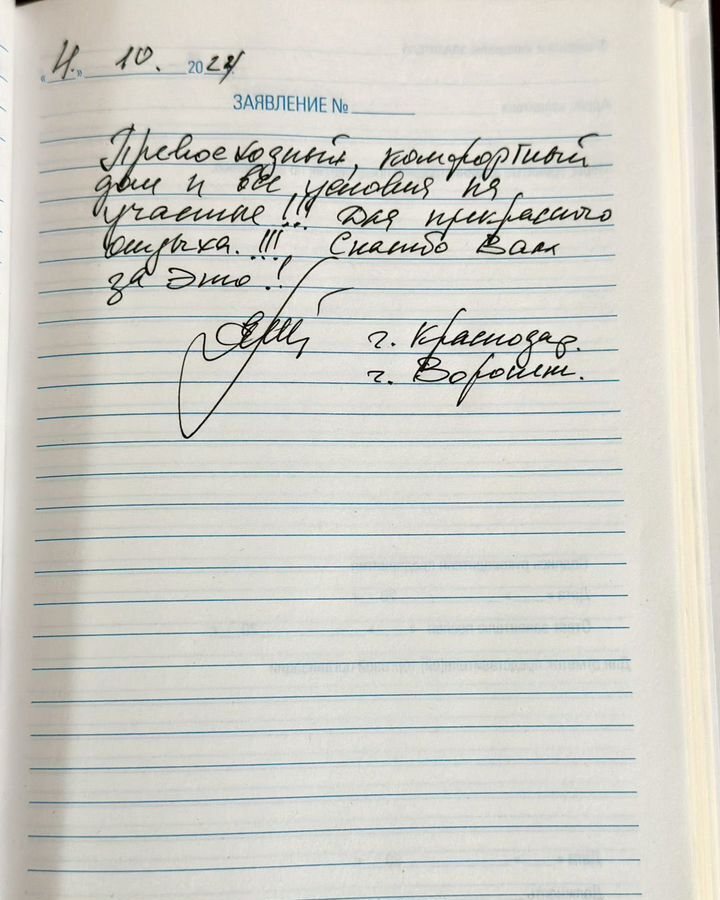 « 11. » 10. 2024
ЗАЯВЛЕНИЕ №
Превосходный, комфортный
дом и все условия на
участке!!! Для прекрасного
отдыха.!!! Спасибо Вам
за это!
г. Краснодар.
г. Воронеж.